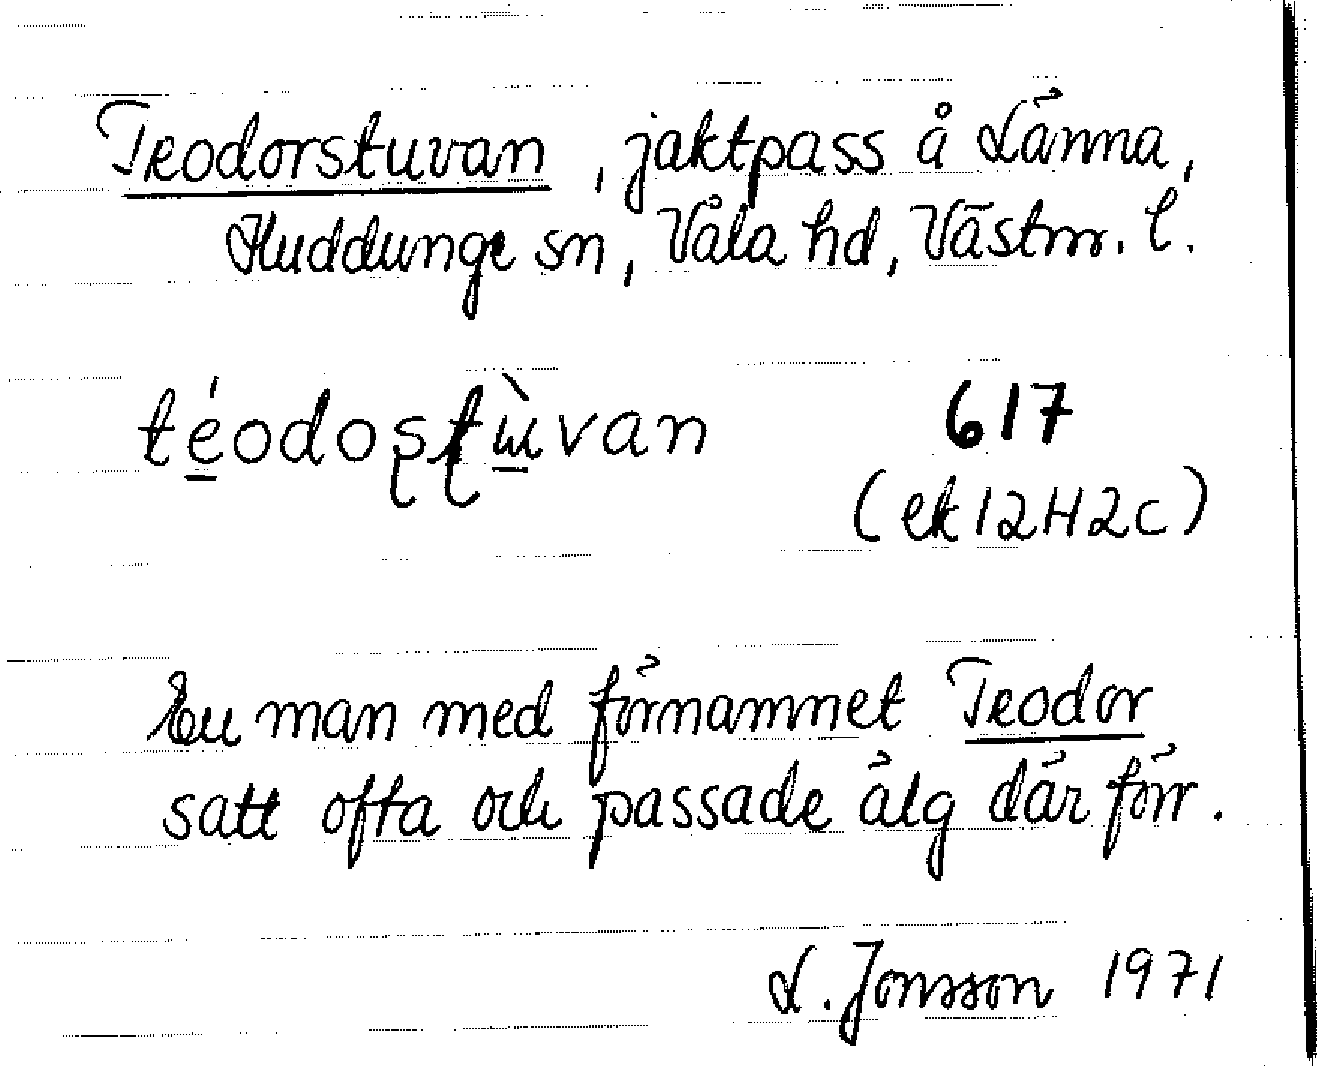 Teodorstuvan, jaktpass å Länna,
Huddunge sn, Våla hd, Västm. l.
téodostùvan
617
(ek 12H2c)
En man med förnamnet Teodor
satt ofta och passade älg där förr.
L. Jonsson 1971